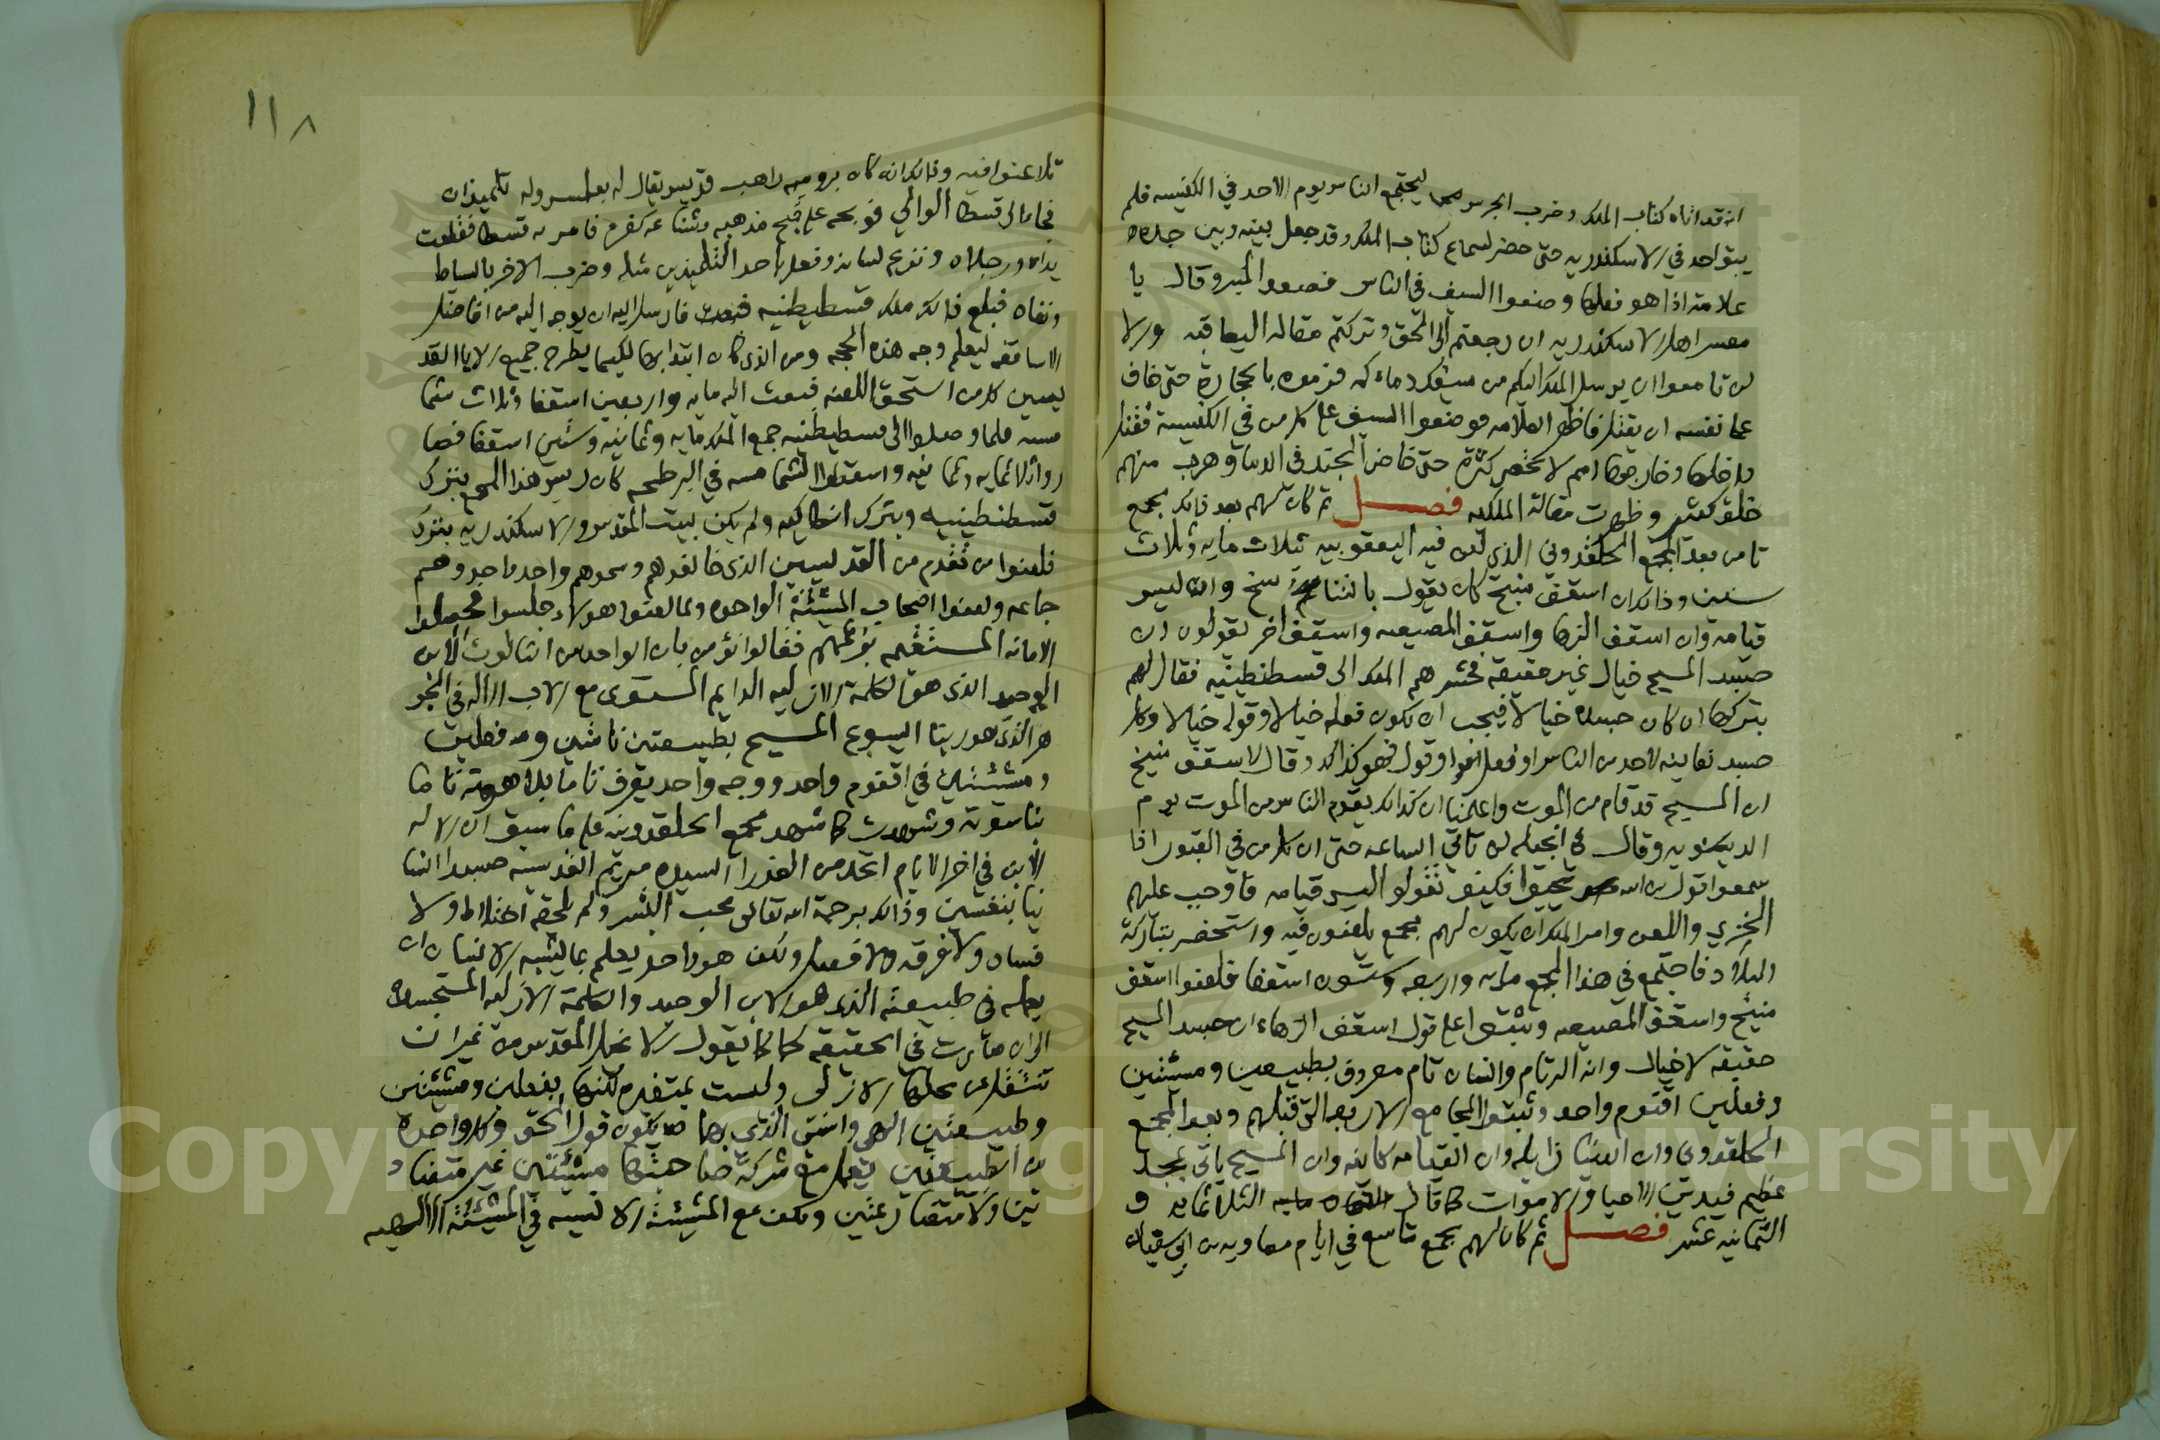 انه قد اتاه كتاب الملك وضرب الجرس ليجتمع الناس يوم الاحد في الكنيسه فلم
يبق احد في الاسكندريه حتى حضر لسماع كتاب الملك وقد جعل بينه وبين جنده
علامة اذا هو فعلها وضعوا السيف في الناس فصعد المنبر وقال يا
معسر اهل الاسكندريه ان رجعتم الى الحق وتركتم مقاله اليعاقبه والا
لن تامنوا ان يرسل الملك اليكم من سيفك دماءكم فرموه بالحجارة حتى خاف
على نفسه ان يقتل فاظهر العلامه فوضعوا السيف على كل من في الكنيسة فقتل
داخلها وخارجها امم لا تحصى كثرة حتى خاض الجند في الدما وهرب منهم
خلق كثير وظهرت مقالة الملكيه فصل ثم كان لهم بعد ذالك مجمع
ثامن بعد المجمع الخلقدوني الذي لعن فيه اليعقوبيه بثلاث مايه وثلاث
سنين وذالك ان اسقف منبج كان يقول بالتناسخ وان ليس
قيامة وان اسقف الرها واسقف المصيصه واسقف اخر يقولون ان
جسد المسيح خيال غير حقيقة فحشرهم الملك الى قسطنطينيه فقال لهم
بتركها ان كان جسده خيالا فيجب ان يكون فعله خيالا وقوله خيالا وكل
جسد نعاينه لاحد من الناس او فعل او قول فهو كذالك وقال لاسقف منبج
ان المسيح قد قام من الموت واعلمنا ان كذالك يقوم الناس من الموت يوم
الدينونيه وقال في انجيله لن تاتي الساعه حتى ان كل من في القبور اذا
سمعوا قول بن الله يحيوا فكيف تقولوا ليس قيامه فاوجب عليهم
الخزي واللعن وامر الملك ان يكون لهم مجمع يلعنون فيه واستحضر بتاركة
البلاد فاجتمع في هذا المجمع مايه واربعه وستون اسقفا فلعنوا اسقف
منبج واسقف المصيصه وثبتوا على قول اسقف الرهاء ان جسد المسيح
حقيقه لا خيال وانه اله تام وانسان تام معروف بطبيعتين ومشيئتين
وفعلين اقنوم واحد وثبتوا المجامع الاربعه التي قبلهم وبعد المجمع
الخلقدوني وان الدنيا زايله وان القيامه كاينه وان المسيح ياتي بمجد
عظيم فيدين الاحيا والاموات كما قال الثلاثمايه و
الثمانيه عشر فصل ثم كان لهم مجمع تاسع في ايام معاويه بن ابي سفيان
١١٨
تلاعنوا فيه وذالك انه كان برومية راهب قديس يقال له وله تلميذان
فجاء الى قسطا الوالي فوبخه على قبح مذهبه وشناعه كفره فامر به قسطا فقطعت
يداه ورجلاه ونزع لسانه وفعل باحد التلميذين مثله وضرب الاخر بالسياط
ونفاه فبلغ ذالك ملك قسطنطينيه فارسل اليه ان يوجه اليه من افاضل
الاساقفه ليعلم وجه هذه الحجه ومن الذي كان ابتداها لكيما يطرح جميع الابا القد
يسين كل من استحق اللعنه فبعث اليه مايه واربعين اسقفا وثلاث شما
مسه فلما وصلوا الى قسطنطنيه جمع الملك مايه وثمانيه وستين اسقفا فصا
روا ثلاثمايه وثمانيه واسقطوا الشمامسه في البرطحه كان رييس هذا المجمع بترك
قسطنطينيه وبترك انطاكيه ولم يكن لبيت المقدس والاسكندريه بترك
فلعنوا من تقدم من القديسين الذي خالفوهم وسموهم واحد واحد وهم
جماعه ولعنوا اصحاب المشيئة الواحده ولما لعنوا هولاء جلسوا
الامانه المستقيمه بزعمهم فقالوا نؤمن بان الواحد من الثالوث الابن
الوحيد الذي هو الكلمة الازليه الدايم المستوى مع الاب الاله في الجوهر
هو الذي هو ربنا اليسوع المسيح بطبيعتين تامتين وفعلين
ومشيئتين في اقنوم واحد ووجه واحد يعرف تاما بلاهوته تاما
بناسوته وشهدت كما شهد مجمع الخلقدونيه على ما سبق ان الاله
الابن في اخر الايام اتخذ من العذرا السيده مريم القديسه جسدا انسا
نيا بنفسين وذالك برحمة الله تعالى محب البشر ولم يلحقه اختلاط ولا
فساد ولا فرقه ولا فصل ولكن هو واحد يعلم بما يشبه الانسان ان
يعمله في طبيعته الذي هو الابن الوحيد والكلمة الازليه المتجسده
الى ان صارت في الحقيقه لحما كما يقول الانجيل المقدس من غير ان
تنتقل من محلها الازلى وليست بمتغيره لكنها بفعلين ومشيئتين
وطبيعتين الهى وانسى الذي بهما يكون قول الحق وكل واحده
من الطبيعتين تعمل مع شركة صاحبتها مشيئتين غير متضاد
تين ولا متضارعتين ولكن مع المشيئة الانسيه في المشيئة الالهيه